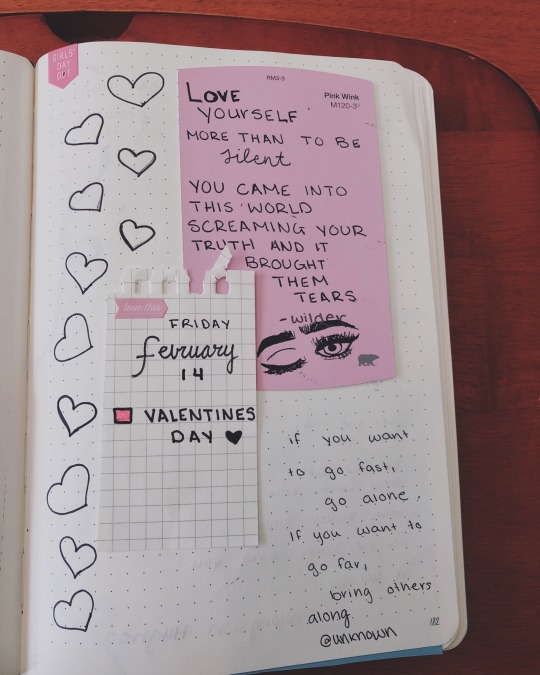 GIRLS'
DAY
OUT
RM3-3
Pink Wink
M120-3
LOVE
YOURSELF
MORE THAN TO BE
silent
YOU CAME INTO
THIS WORLD
SCREAMING YOUR
TRUTH AND IT
BROUGHT
THEM
TEARS
-wilder
love this
FRIDAY
februrary
14
VALENTINES
DAY
if you want
to go fast,
go alone.
if you want to
go far,
bring others
along
@unknown
182